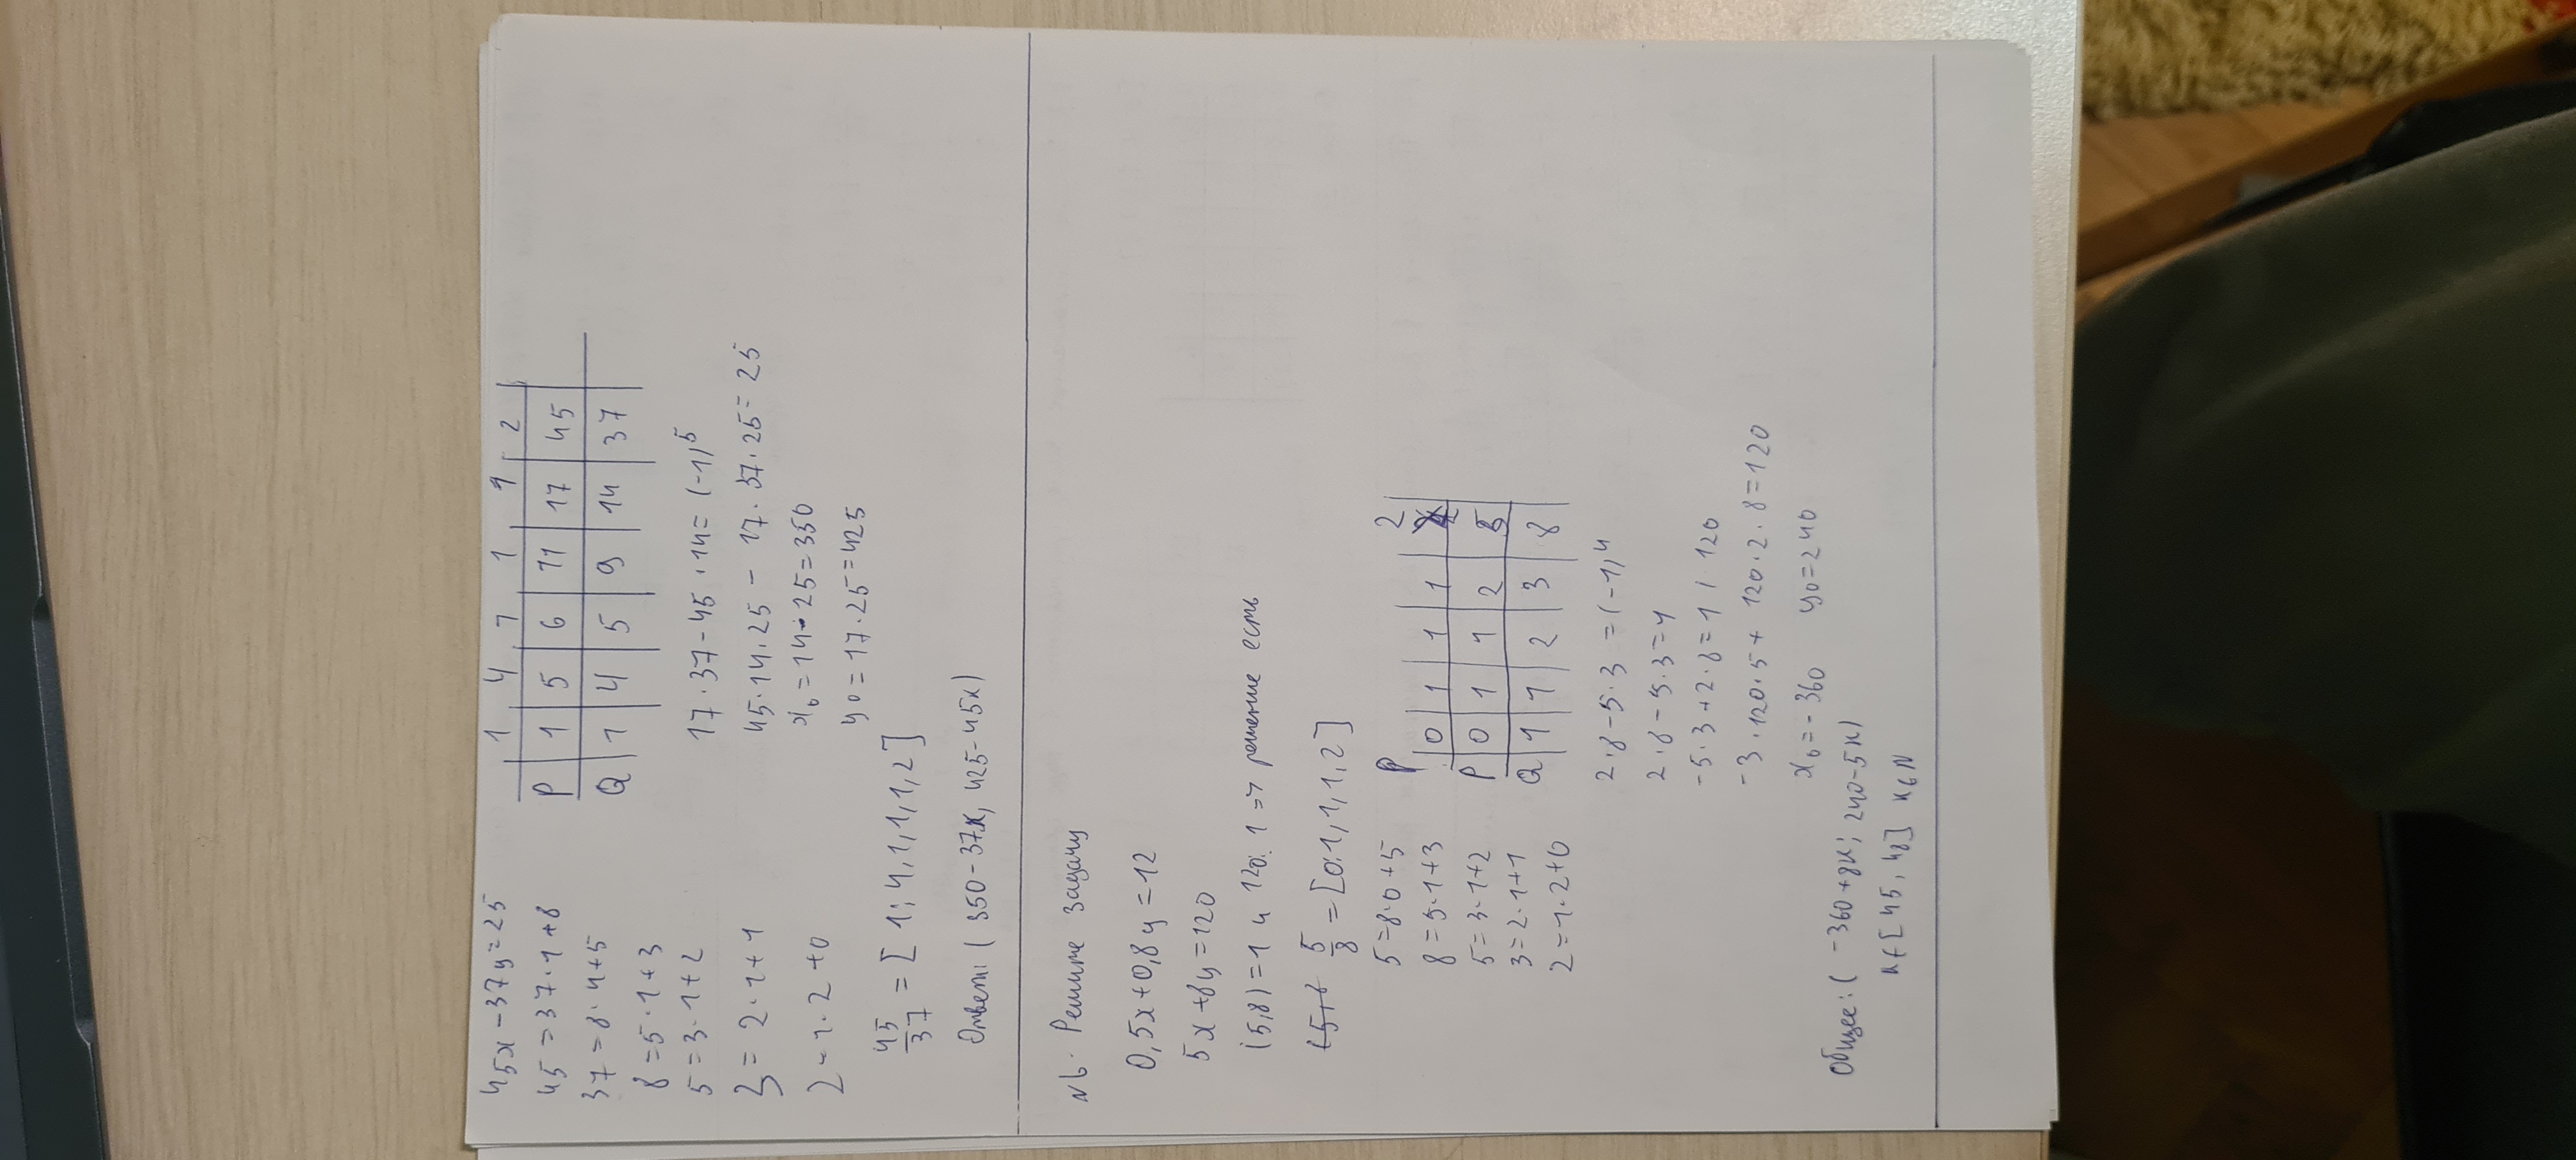 45x - 37y = 25
45 = 37·1 + 8
37 = 8·4 + 5
8 = 5·1 + 3
5 = 3·1 + 2
3 = 2·1 + 1
2 = 1·2 + 0
45/37 = [1; 4, 1, 1, 1, 2]
1 4 1 1 1 2
P 1 5 6 11 17 45
Q 1 4 5 9 14 37
17·37 - 45·14 = (-1)^5
45·14·25 - 17·37·25 = 25
x₀ = 14·25 = 350
y₀ = 17·25 = 425
Ответ: (350 - 37k, 425 - 45k)
№6. Решите задачу
0,5x + 0,8y = 12
5x + 8y = 120
(5,8) = 1 и 120⋮1 => решение есть
5/8 = [0; 1, 1, 1, 2]
5 = 8·0 + 5
8 = 5·1 + 3
5 = 3·1 + 2
3 = 2·1 + 1
2 = 1·2 + 0
P
0 1 1 1 2
P 0 1 1 2 5
Q 1 1 2 3 8
2·8 - 5·3 = (-1)^4
2·8 - 5·3 = 1
-5·3 + 2·8 = 1 | 120
-3·120·5 + 120·2·8 = 120
x₀ = -360 y₀ = 240
Общее: (-360 + 8k; 240 - 5k)
k ∈ [45, 48] k ∈ N